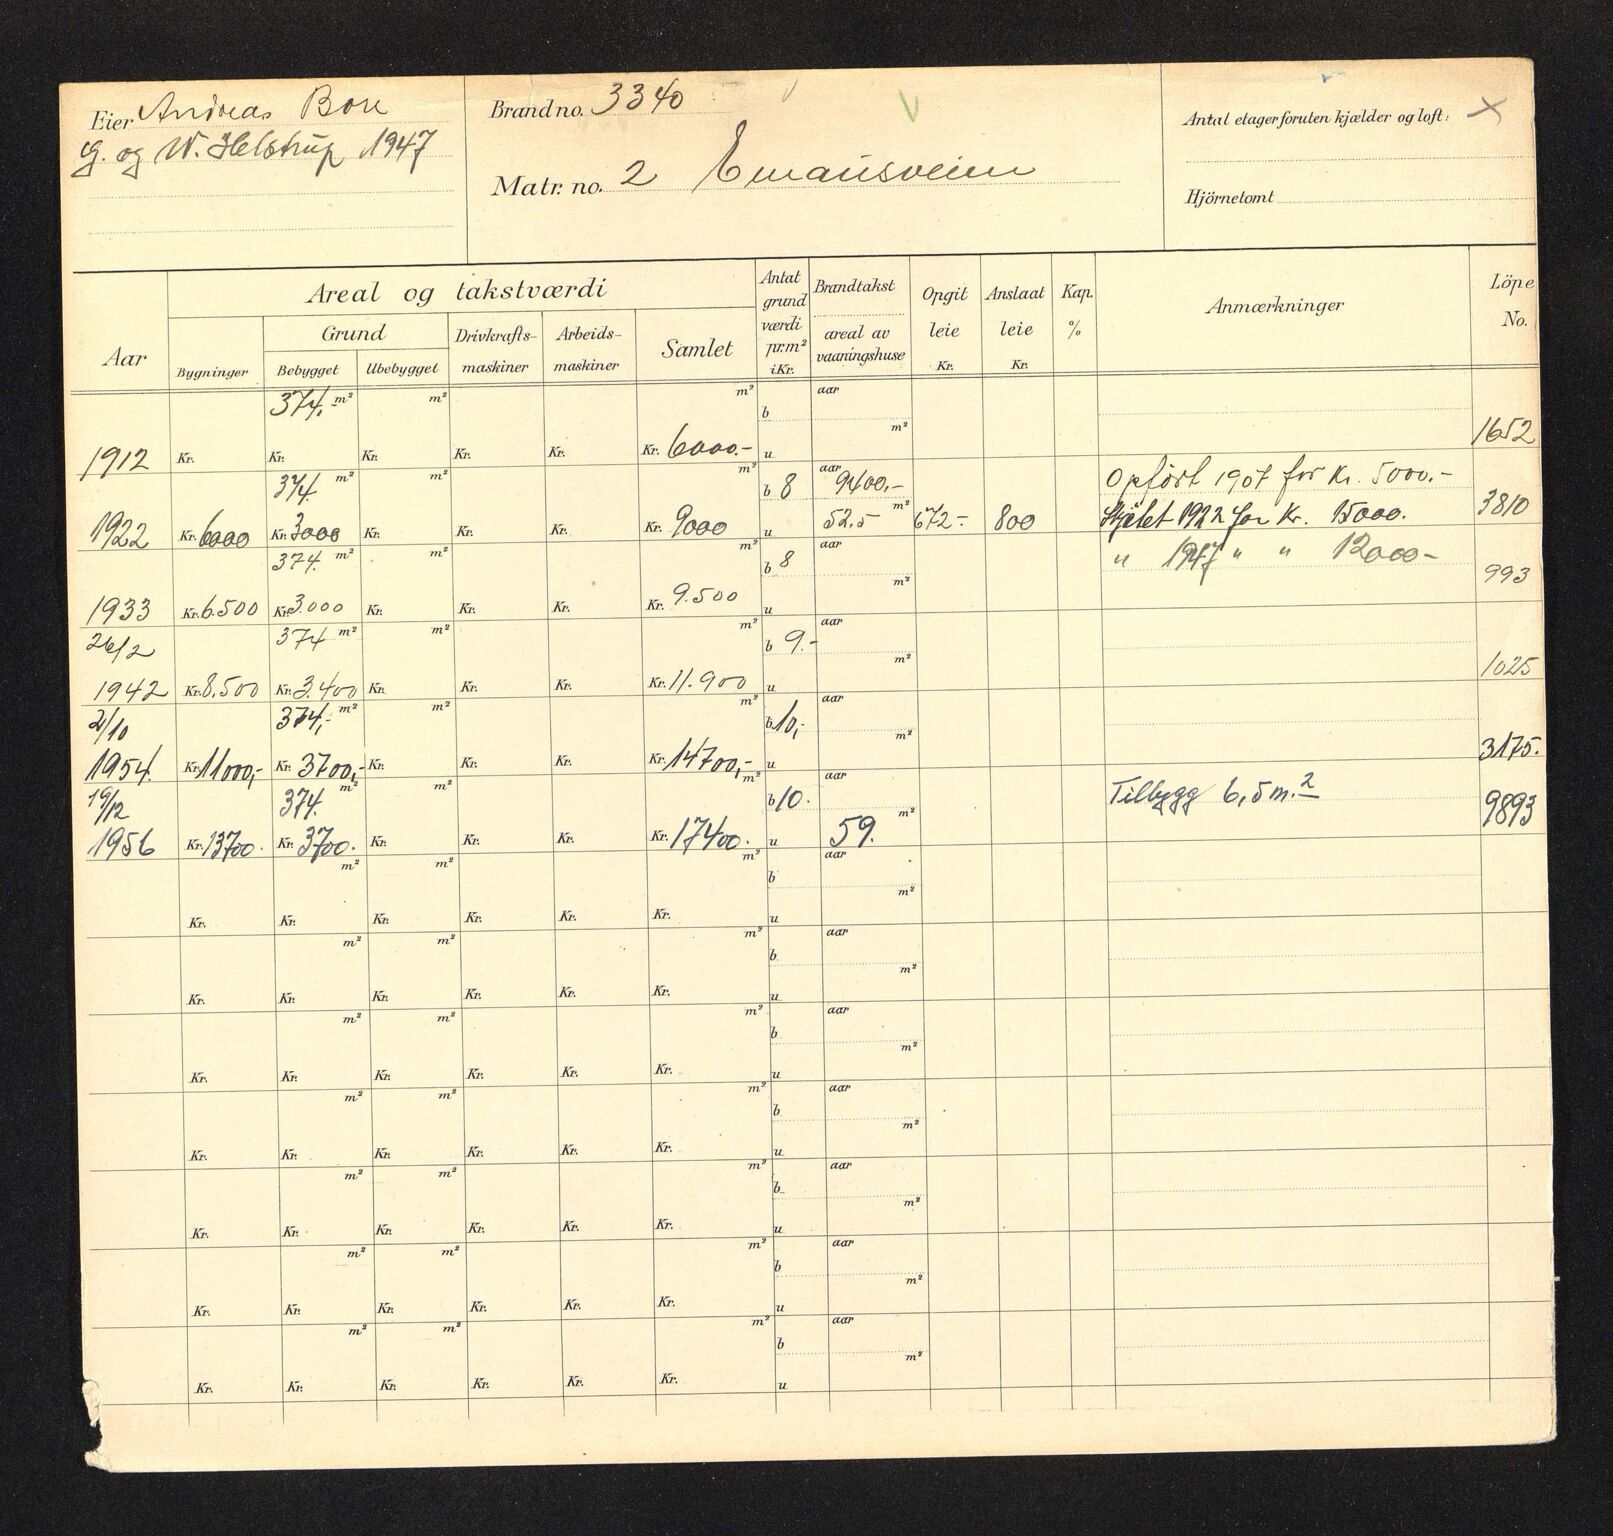 Eier Andreas Bore
G. og W. Helstrup 1947
Brand no. 3340
Matr. no. 2 Emausveien
Antal etager foruten kjælder og loft: ×
Hjörnetomt
Aar
Areal og takstværdi
Bygninger
Grund
Bebygget
Ubebygget
Drivkrafts-
maskiner
Arbeids-
maskiner
Samlet
Antat
grund
værdi
pr.m²
i Kr.
Brandtakst
areal av
vaaningshuse
Opgit
leie
Kr.
Anslaat
leie
Kr.
Kap.
%
Anmærkninger
Löpe
No.
374,- m² m² m² b aar
m²
1912 Kr. Kr. Kr. Kr. Kr. Kr. 6000.- u 1652
374. m² m² m² b 8 aar 9400,- Opført 1907 for Kr. 5000.-
m²
1922 Kr. 6000 Kr. 3000 Kr. Kr. Kr. Kr. 9000 u 52.5 672.- 800 Skjötet 1922 for Kr. 15000. 3810
374. m² m² m² b 8 aar " 1947 " " 12000-
m²
1933 Kr. 6.500 Kr. 3.000 Kr. Kr. Kr. Kr. 9.500 u 993
26/2 374 m² m² m² b 9.- aar
m²
1942 Kr. 8.500 Kr. 3.400 Kr. Kr. Kr. Kr. 11.900 u 1025
2/10 374,- m² m² m² b 10,- aar
m²
1954. Kr. 11000,- Kr. 3700,- Kr. Kr. Kr. Kr. 14700,- u 3175.
19/12 374. m² m² m² b 10. aar Tilbygg 6,5 m.²
m²
1956 Kr. 13700. Kr. 3700. Kr. Kr. Kr. Kr. 17400. u 59. 9893
m² m² m² b aar
m²
Kr. Kr. Kr. Kr. Kr. Kr. u
m² m² m² b aar
m²
Kr. Kr. Kr. Kr. Kr. Kr. u
m² m² m² b aar
m²
Kr. Kr. Kr. Kr. Kr. Kr. u
m² m² m² b aar
m²
Kr. Kr. Kr. Kr. Kr. Kr. u
m² m² m² b aar
m²
Kr. Kr. Kr. Kr. Kr. Kr. u
m² m² m² b aar
m²
Kr. Kr. Kr. Kr. Kr. Kr. u
m² m² m² b aar
m²
Kr. Kr. Kr. Kr. Kr. Kr. u